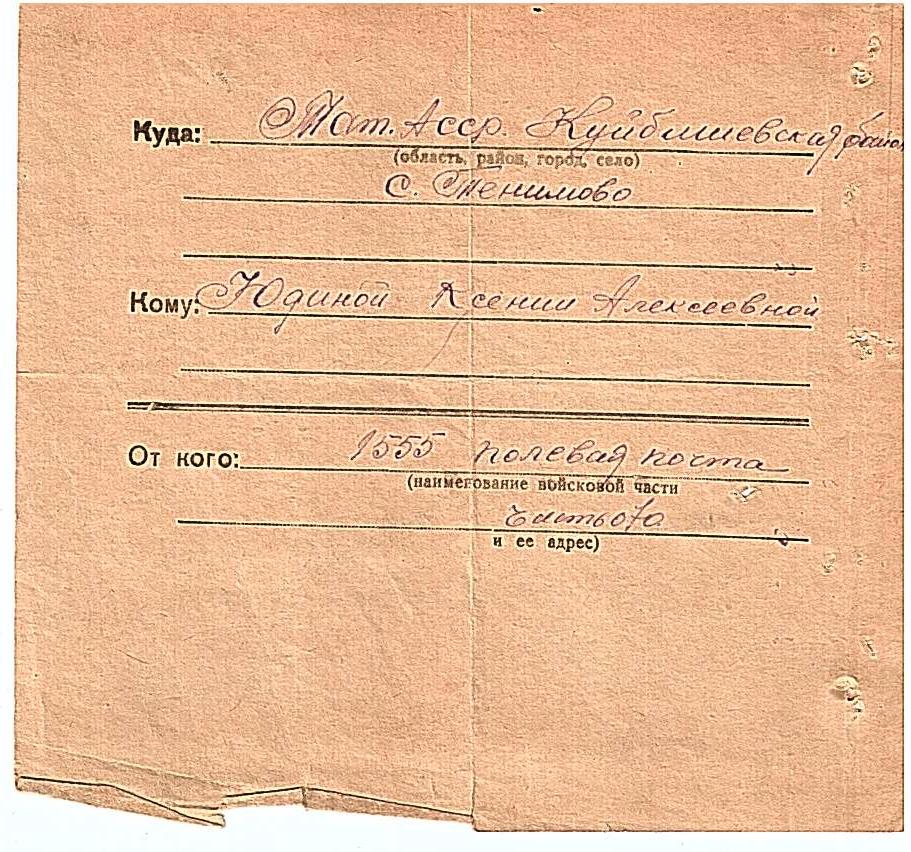 Куда: Тат. Асср. Куйбышевская район
(область, район, город, село)
с. Тенишово
Кому: Юдиной Ксении Алексеевной
От кого: 1555 полевая почта
(наименование войсковой части
и ее адрес)